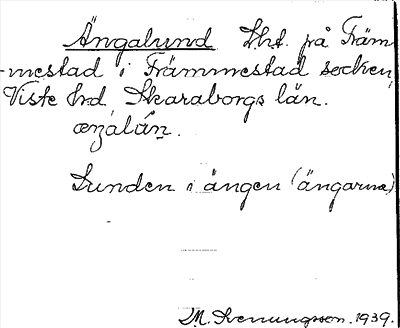 Ängalund Lht. på Främ-
mestad i Främmestad socken,
Viste hrd. Skaraborgs län.
æŋálún.
Lunden i ängen (ängarna)
M. Svenungsson. 1939.